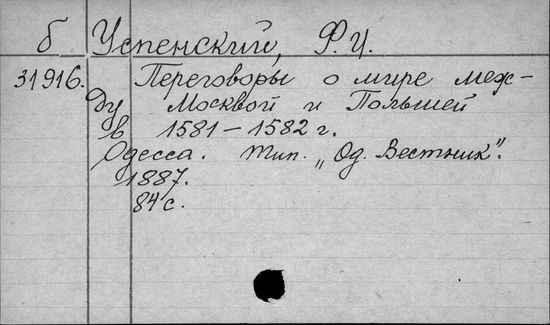 б Успенский, Ф. И.
31916. Переговоры о мире меж-
ду Москвой и Польшей
в 1581-1582 г.
Одесса. Тип. „Од. Вестник".
1887.
84 с.